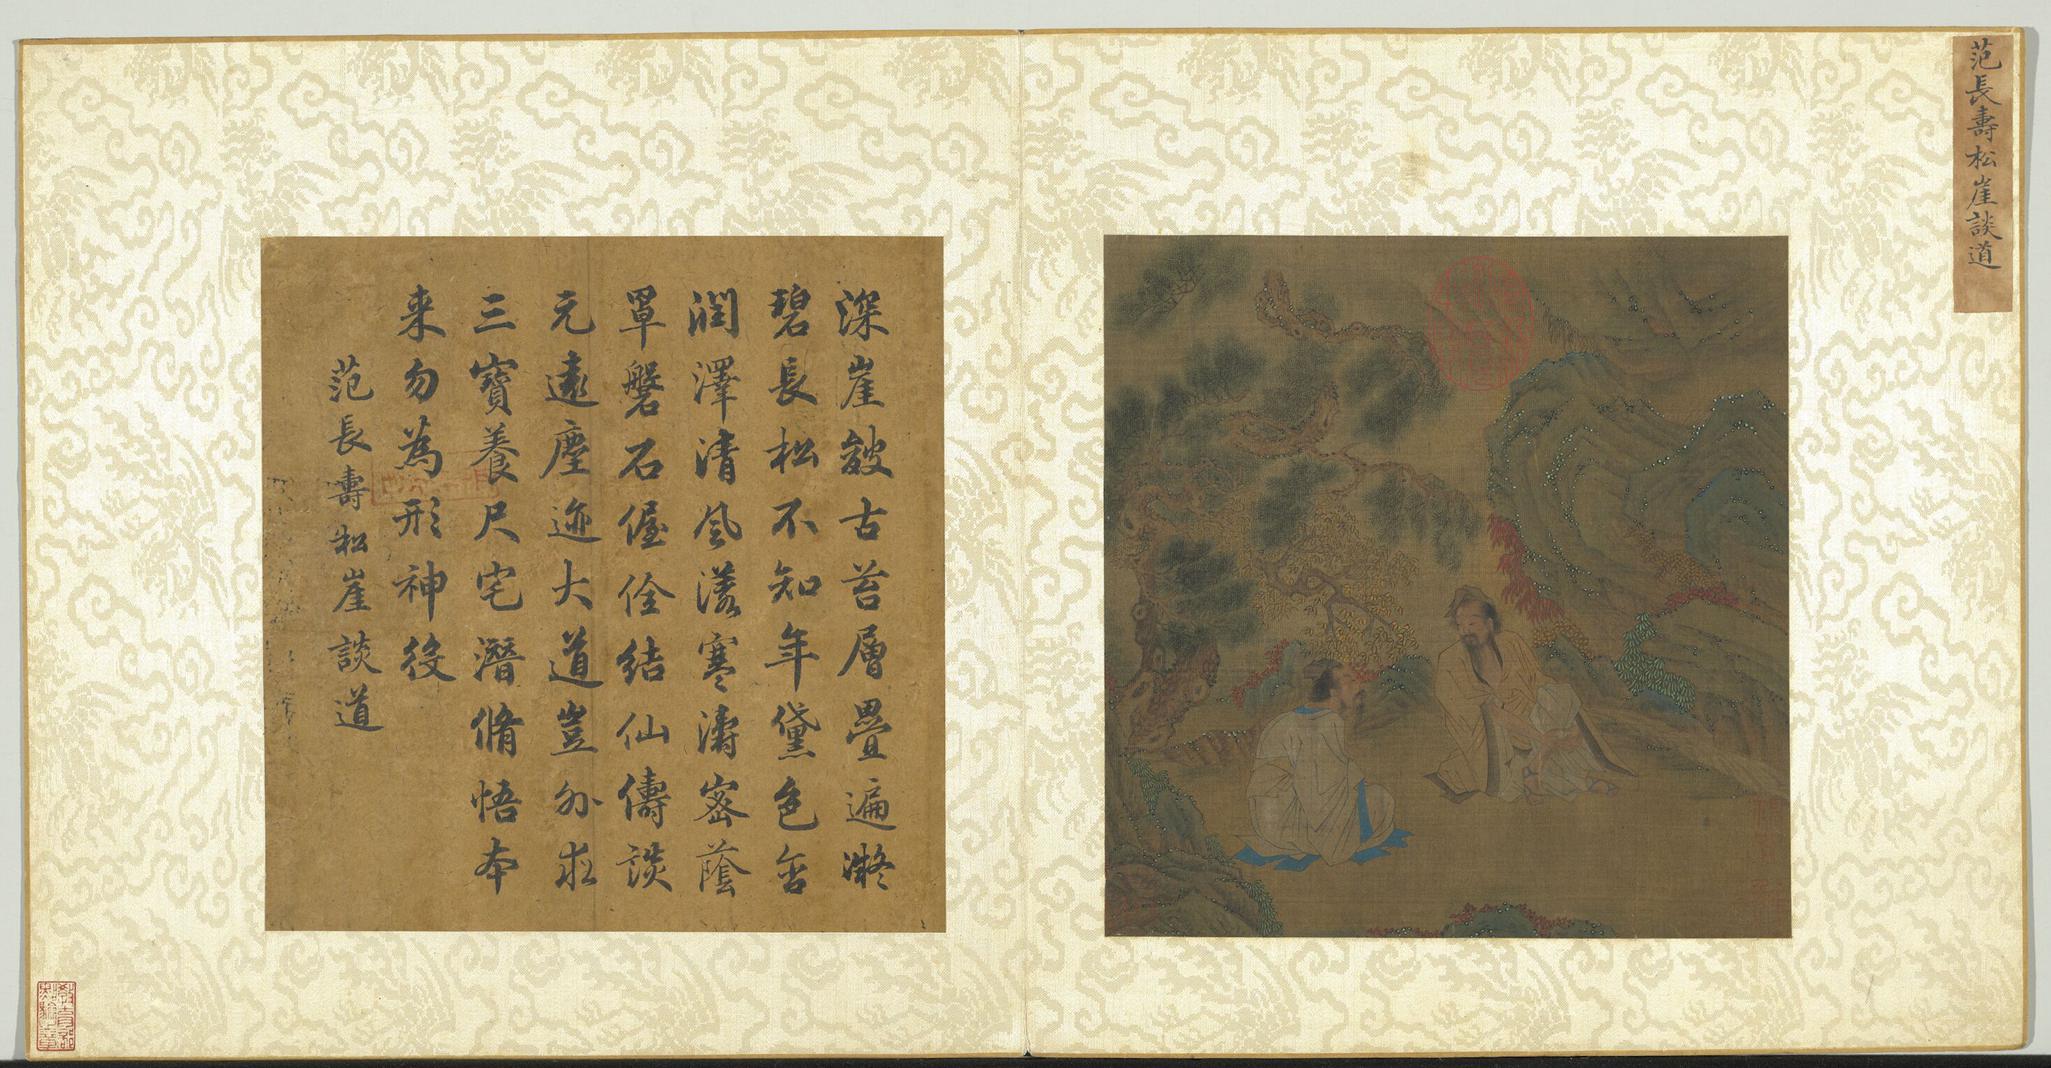 范長壽松崖談道
深崖皴古苔層疊遍凝
碧長松不知年黛色含
潤澤清風落寒濤密蔭
罩磐石偓佺結仙儔談
元遠塵迹大道豈外求
三寶養尺宅潛脩悟本
来勿為形神役
范長壽松崖談道